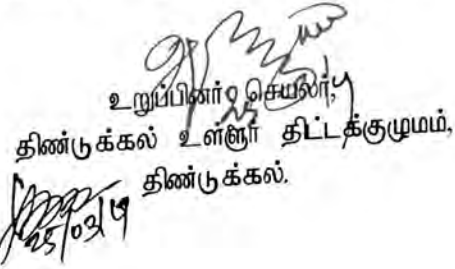 உறுப்பினர் செயலர்,
திண்டுக்கல் உள்ளூர் திட்டக்குழுமம்,
திண்டுக்கல்.
25/03/19